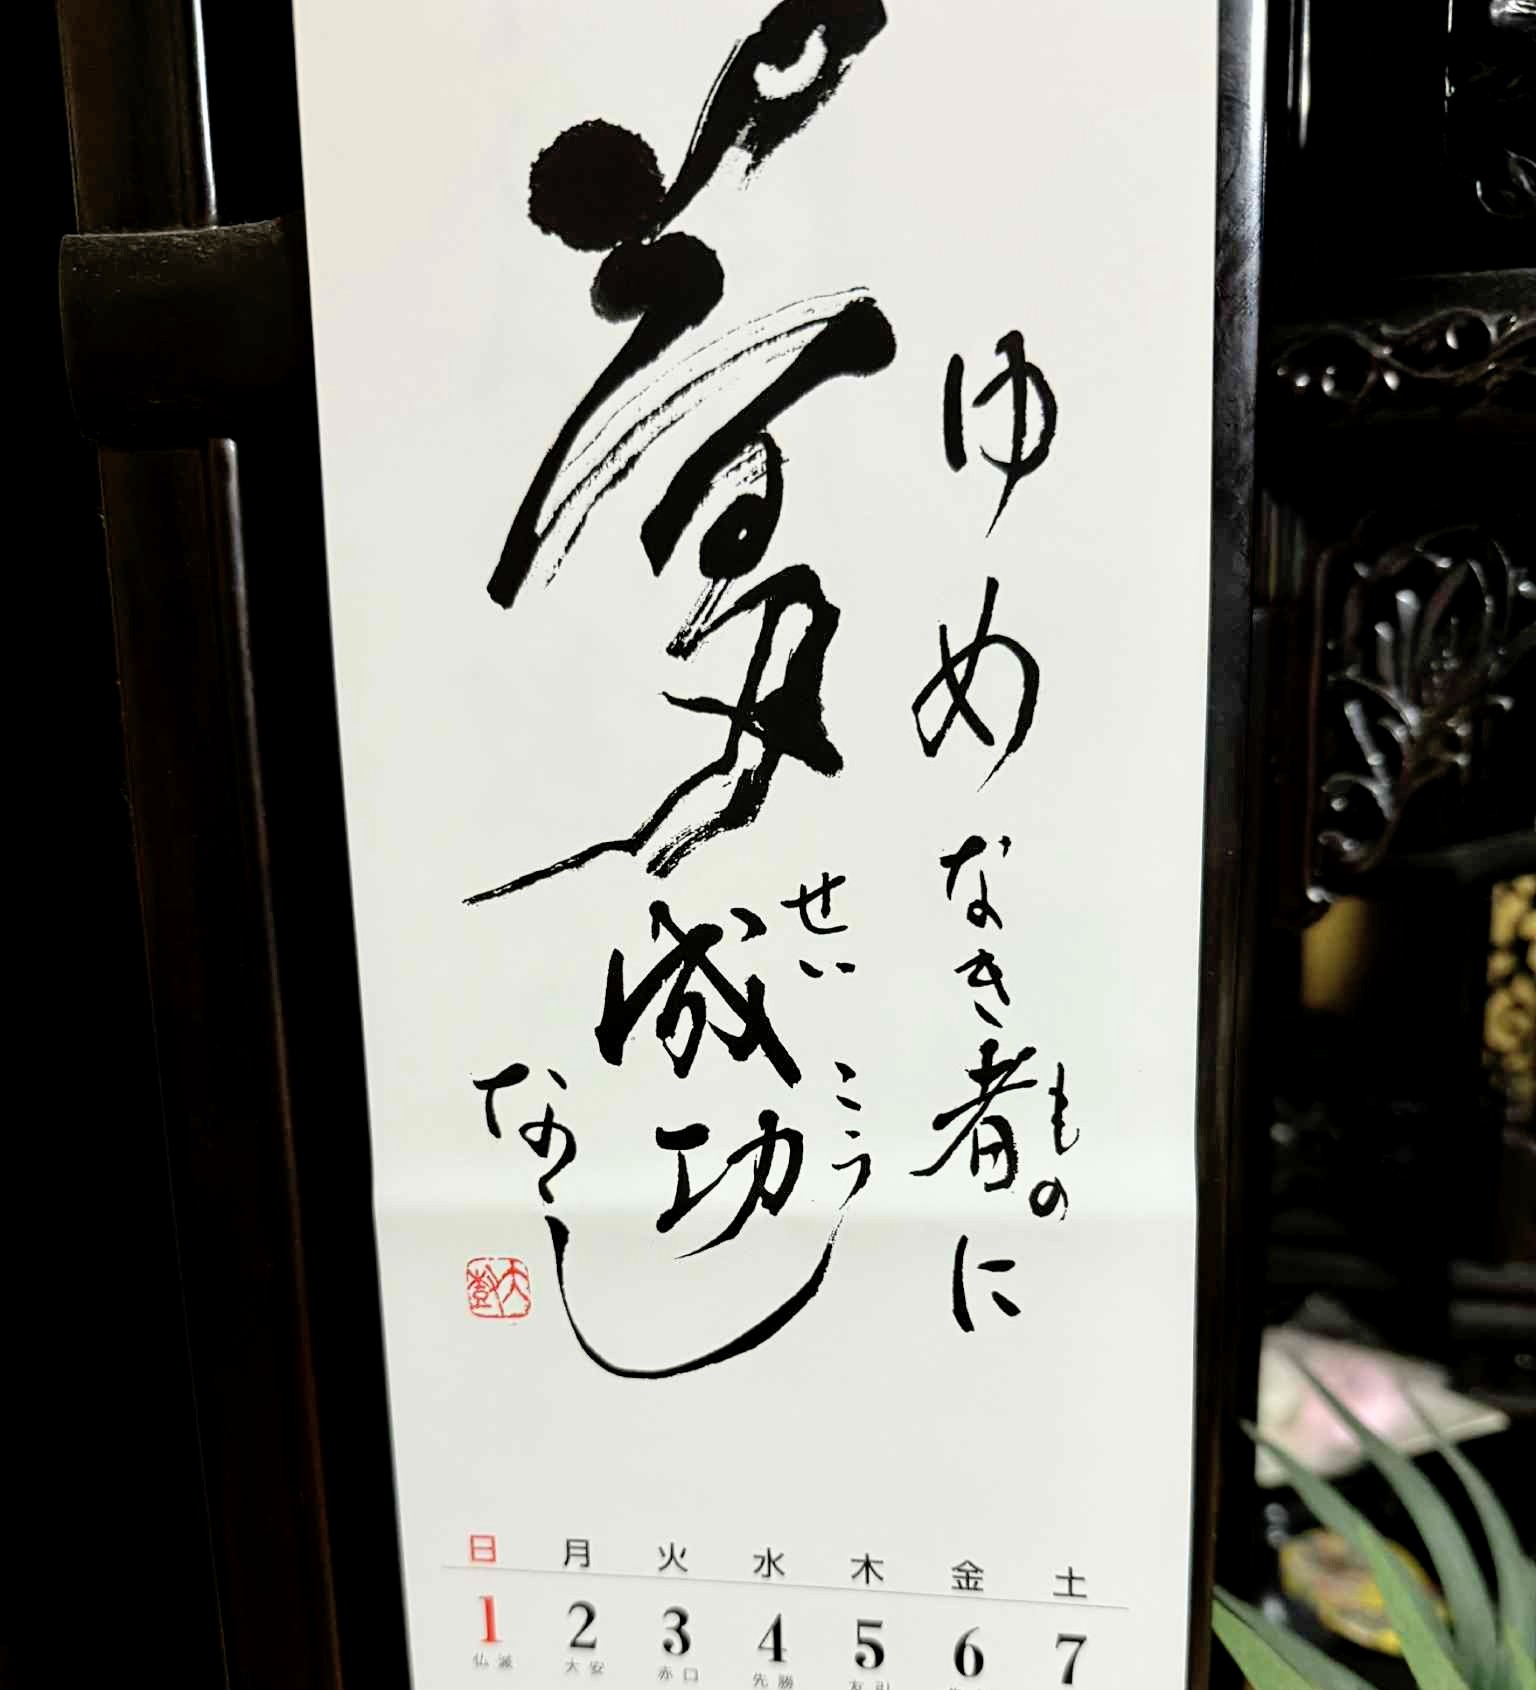 夢
ゆめなき者に
もの
成功
せいこう
なし
日 月 火 水 木 金 土
1 2 3 4 5 6 7
仏滅 大安 赤口 先勝 友引